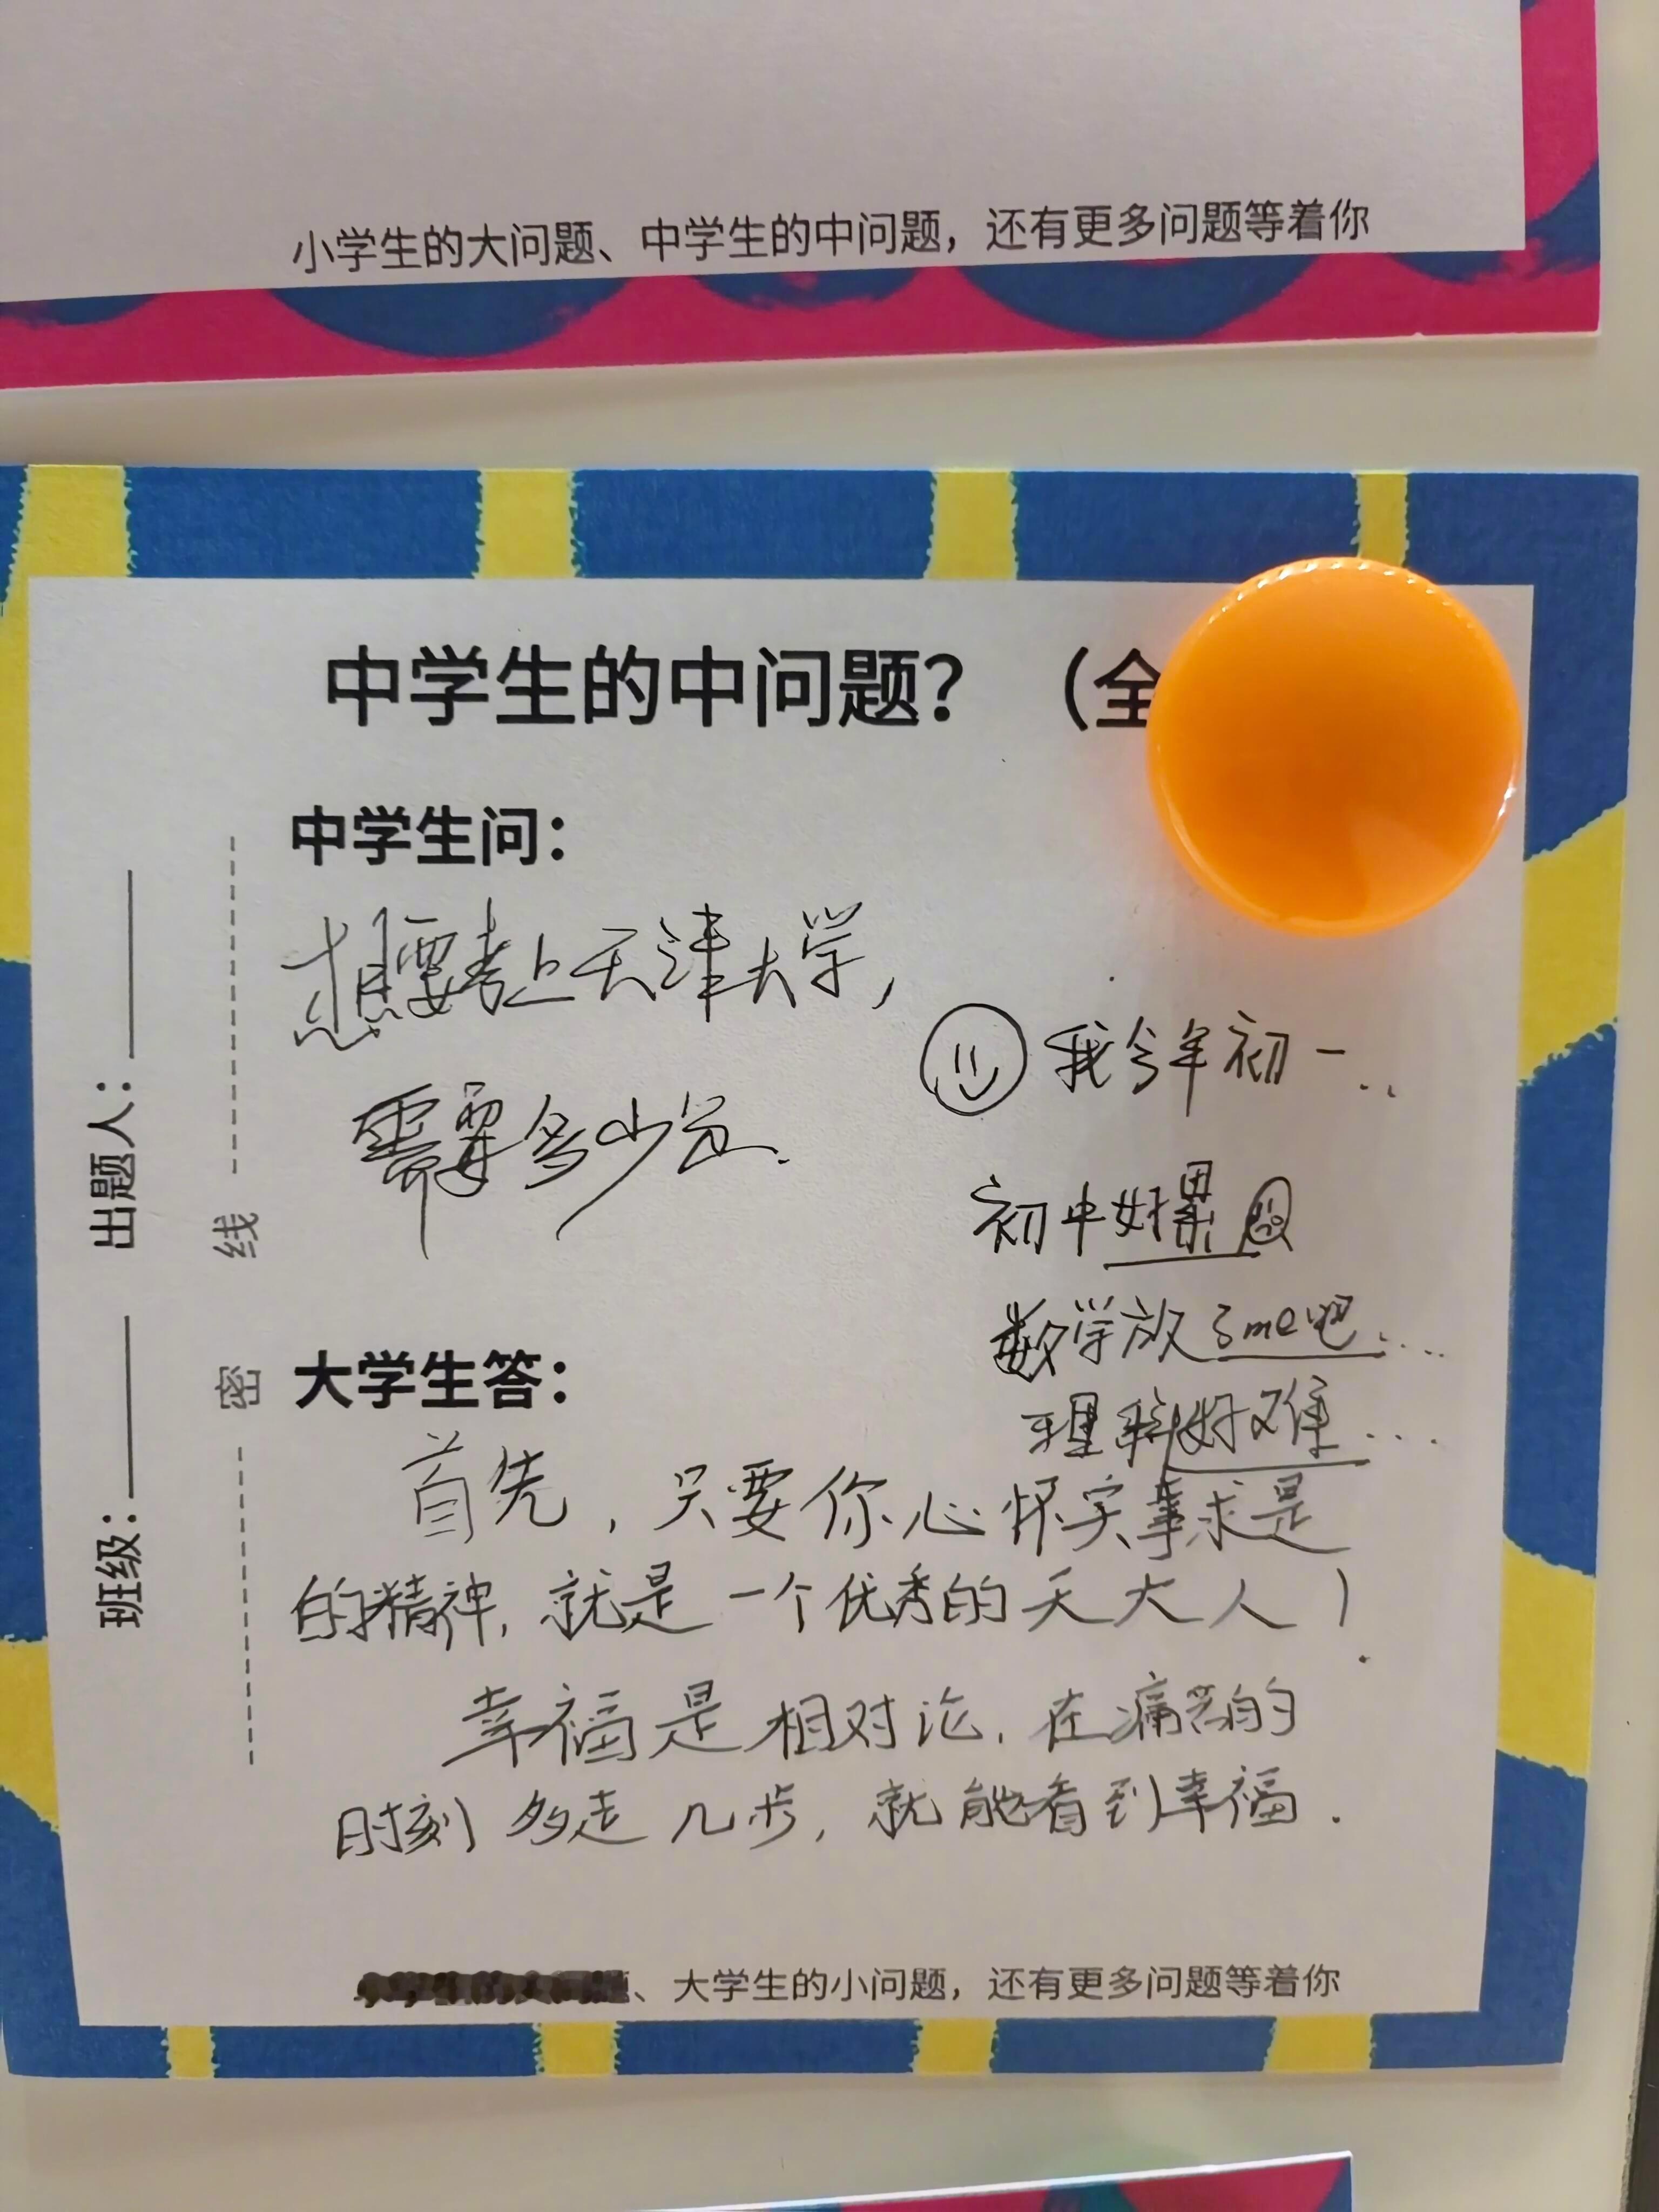 小学生的大问题、中学生的中问题，还有更多问题等着你
中学生的中问题？（全
中学生问：
想要考上天津大学，
需要多少分.
我今年初一...
初中好累
数学放了me吧...
理科好难...
大学生答：
首先，只要你心怀实事求是
的精神，就是一个优秀的天大人！
幸福是相对论，在痛苦的
时刻多走几步，就能看到幸福.
、大学生的小问题，还有更多问题等着你
班级：
出题人：
密
线